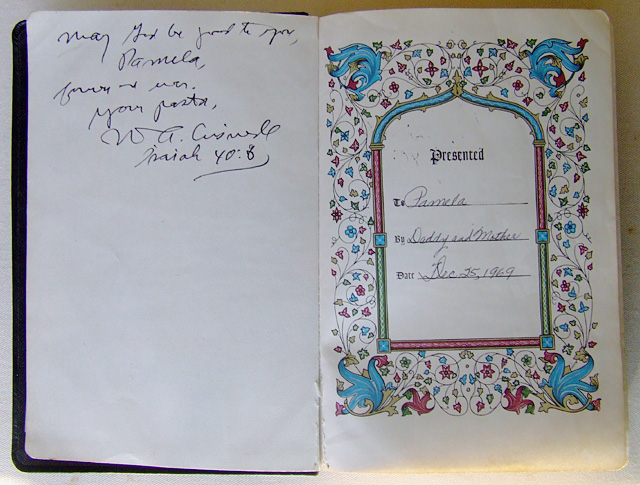 may God be good to you,
Pamela,
forever & ever.
Your pastor,
W. A. Criswell
Isaiah 40:8
Presented
To Pamela
By Daddy and Mother
Date Dec. 25, 1969